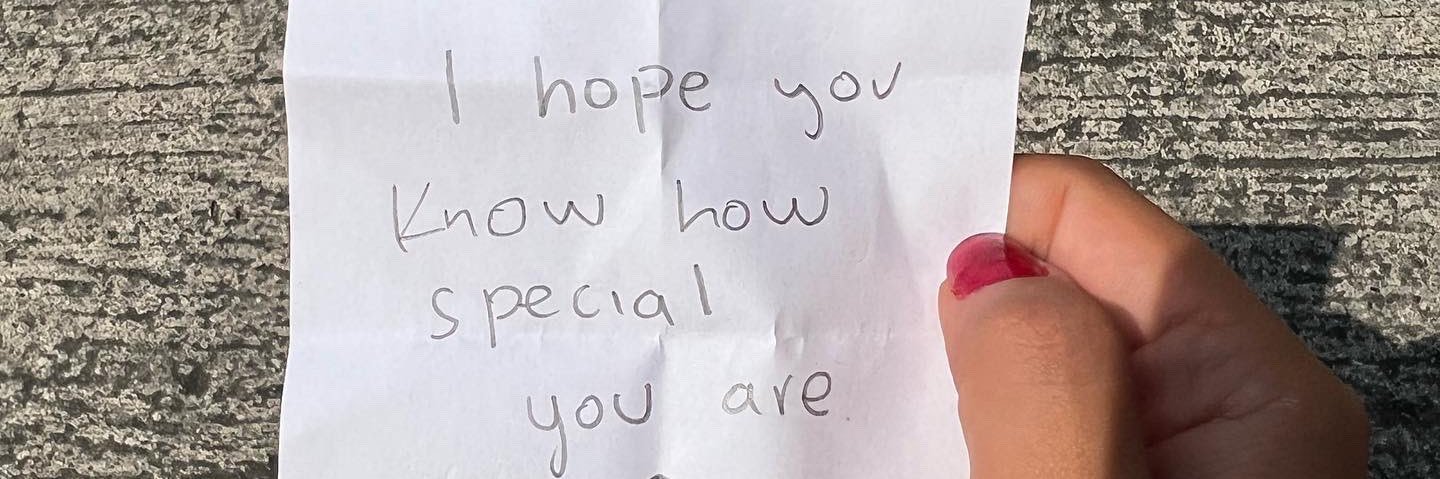 I hope you
Know how
special
you are